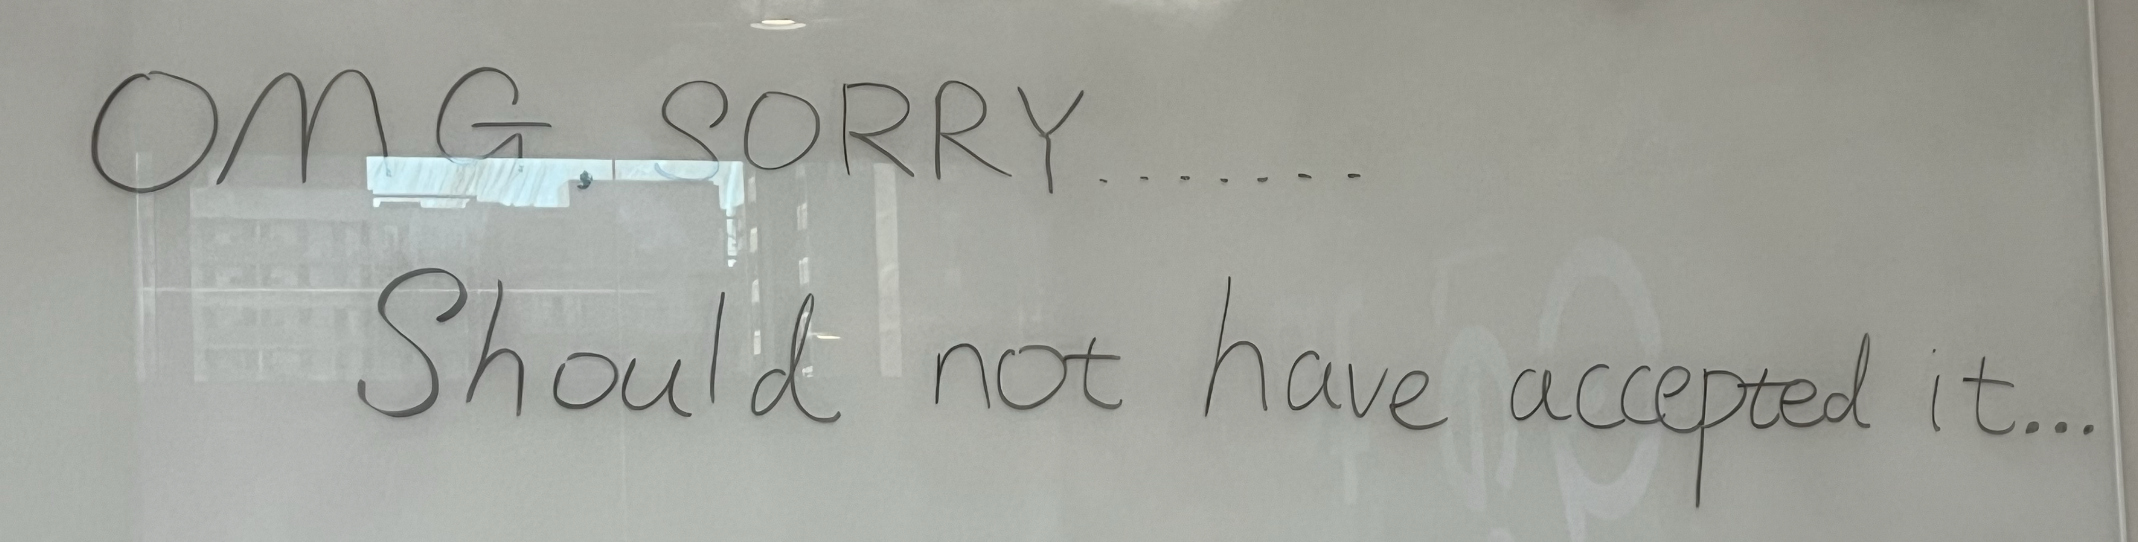 OMG, SORRY.......
Should not have accepted it...